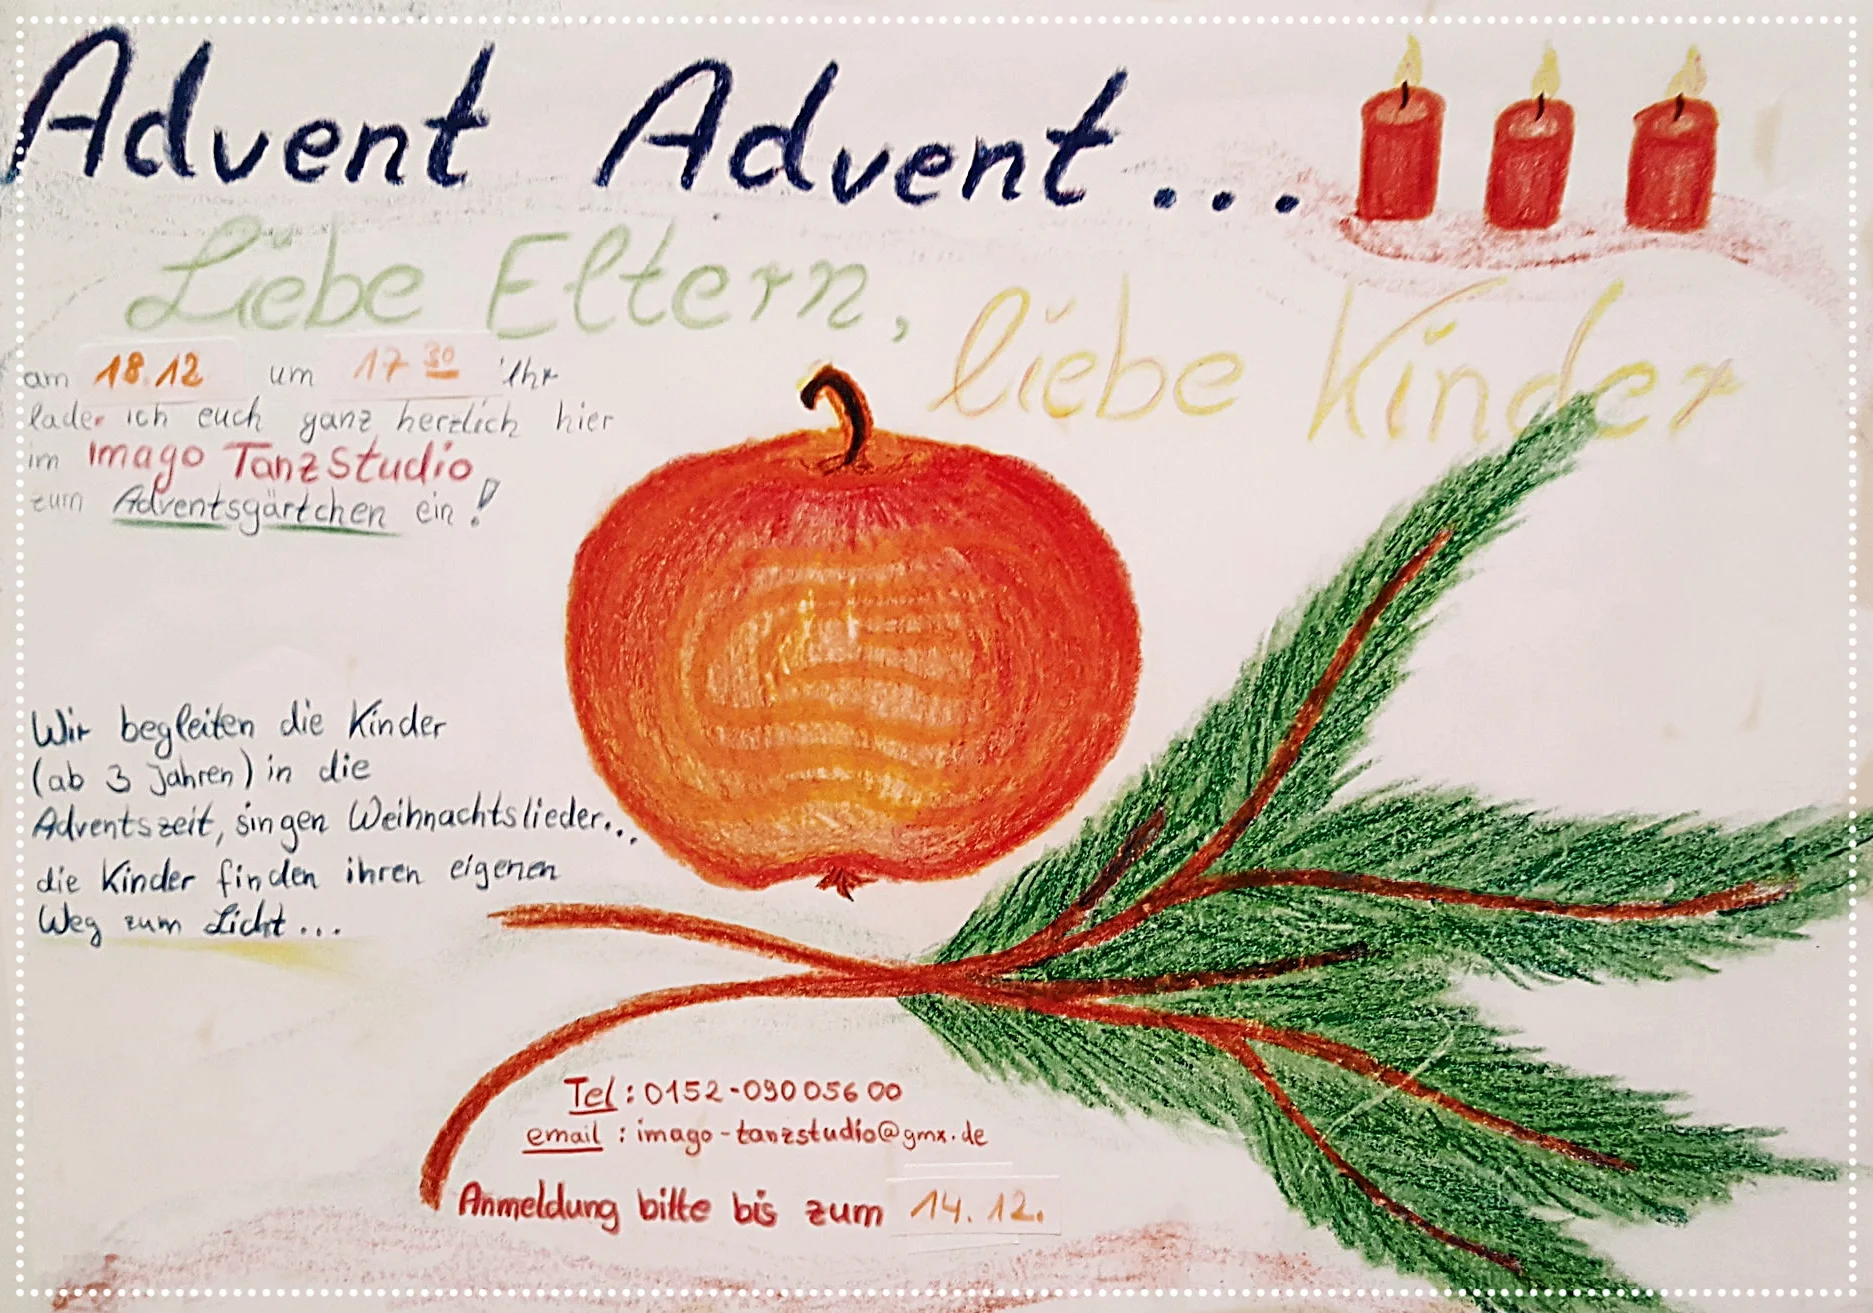 Advent Advent...
Liebe Eltern,
liebe Kinder
am 18.12 um 17 30 Uhr
lade ich euch ganz herzlich hier
im Imago TanzStudio
zum Adventsgärtchen ein!
Wir begleiten die Kinder
(ab 3 Jahren) in die
Adventszeit, singen Weihnachtslieder...
die Kinder finden ihren eigenen
Weg zum Licht...
Tel: 0152-09005600
email: imago-tanzstudio@gmx.de
Anmeldung bitte bis zum 14.12.